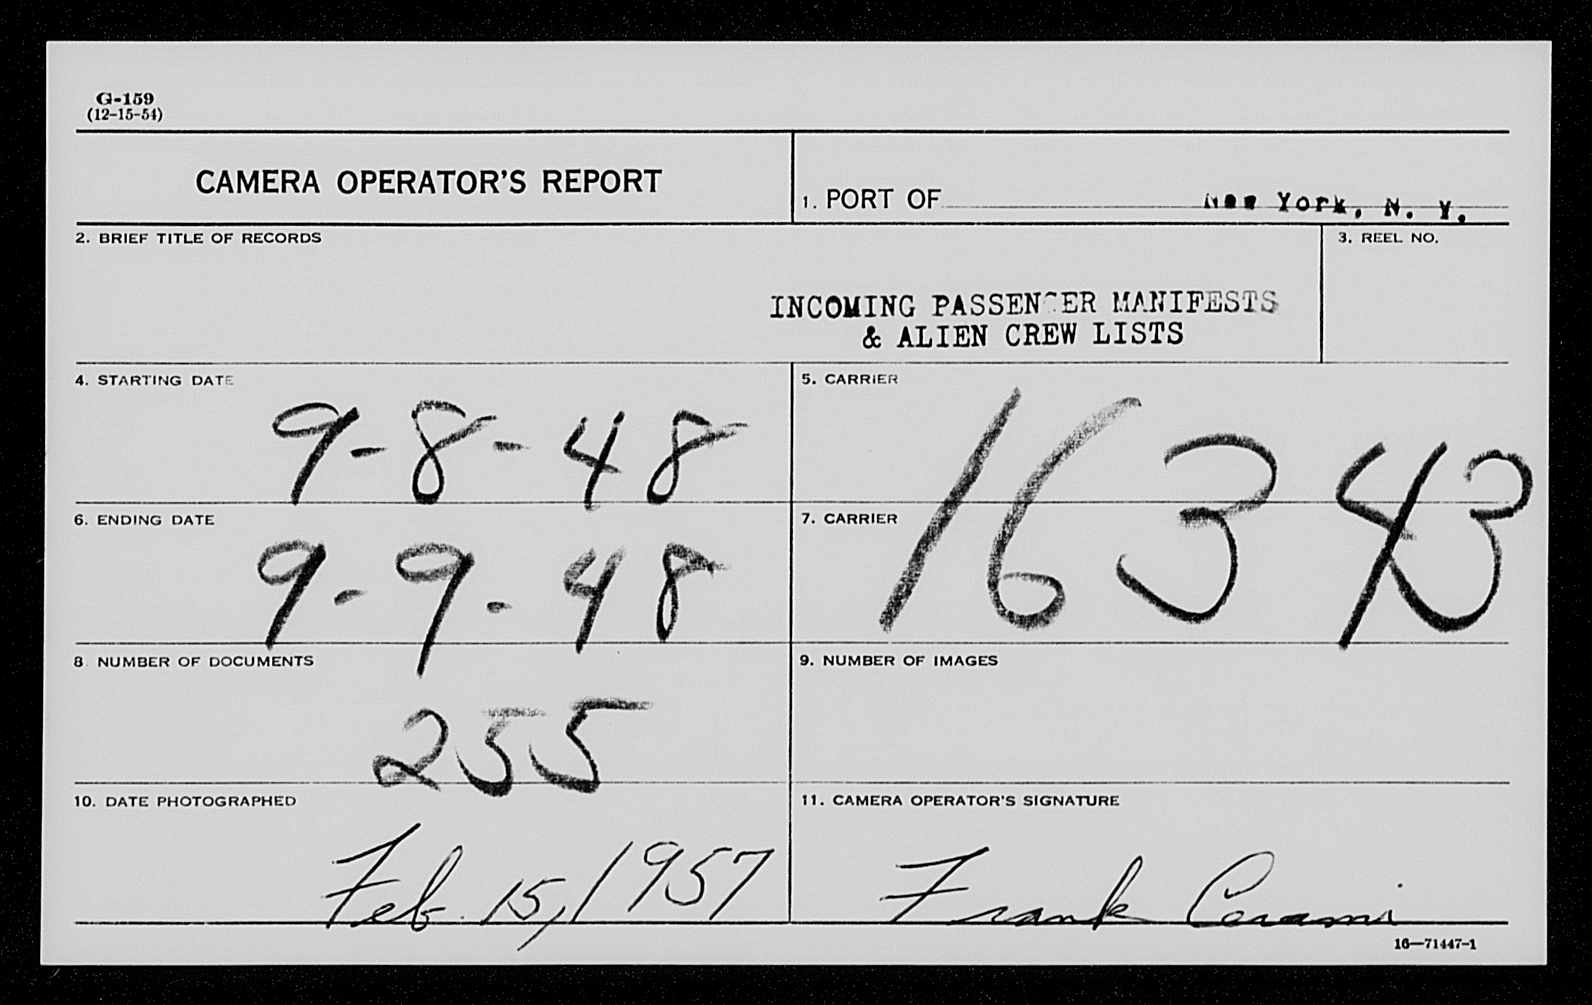 G-159
(12-15-54)
CAMERA OPERATOR'S REPORT
1. PORT OF New York, N. Y.
2. BRIEF TITLE OF RECORDS
3. REEL NO.
INCOMING PASSENGER MANIFESTS
& ALIEN CREW LISTS
4. STARTING DATE
9-8-48
5. CARRIER
16343
6. ENDING DATE
9-9-48
7. CARRIER
8. NUMBER OF DOCUMENTS
255
9. NUMBER OF IMAGES
10. DATE PHOTOGRAPHED
Feb. 15, 1957
11. CAMERA OPERATOR'S SIGNATURE
Frank Cerami
16—71447-1